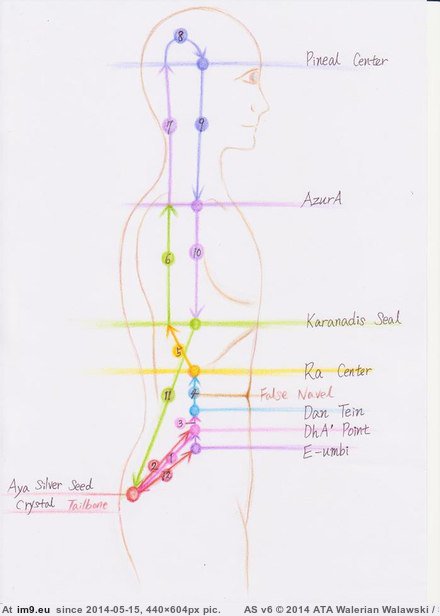 8
Pineal Center
7
9
AzurA
6
10
Karanadis Seal
5
Ra Center
11
4
False Navel
Dan Tein
3
DhA' Point
E-umbi
2
1
12
Aya Silver Seed
Crystal Tailbone
At im9.eu since 2014-05-15, 440×604px pic.
AS v6 © 2014 ATA Walerian Walawski /